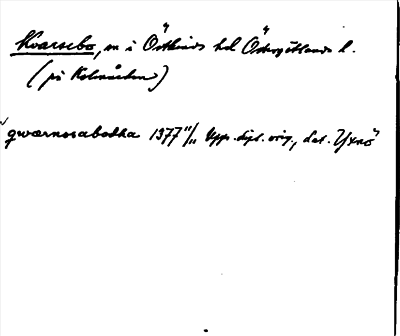 Kvarsebo, sn i Östkinds hd Östergötlands l.
(på Kolmården)
qwærnosabodha 1377 11/11 Upps. dipl. orig., dat. Yxnö